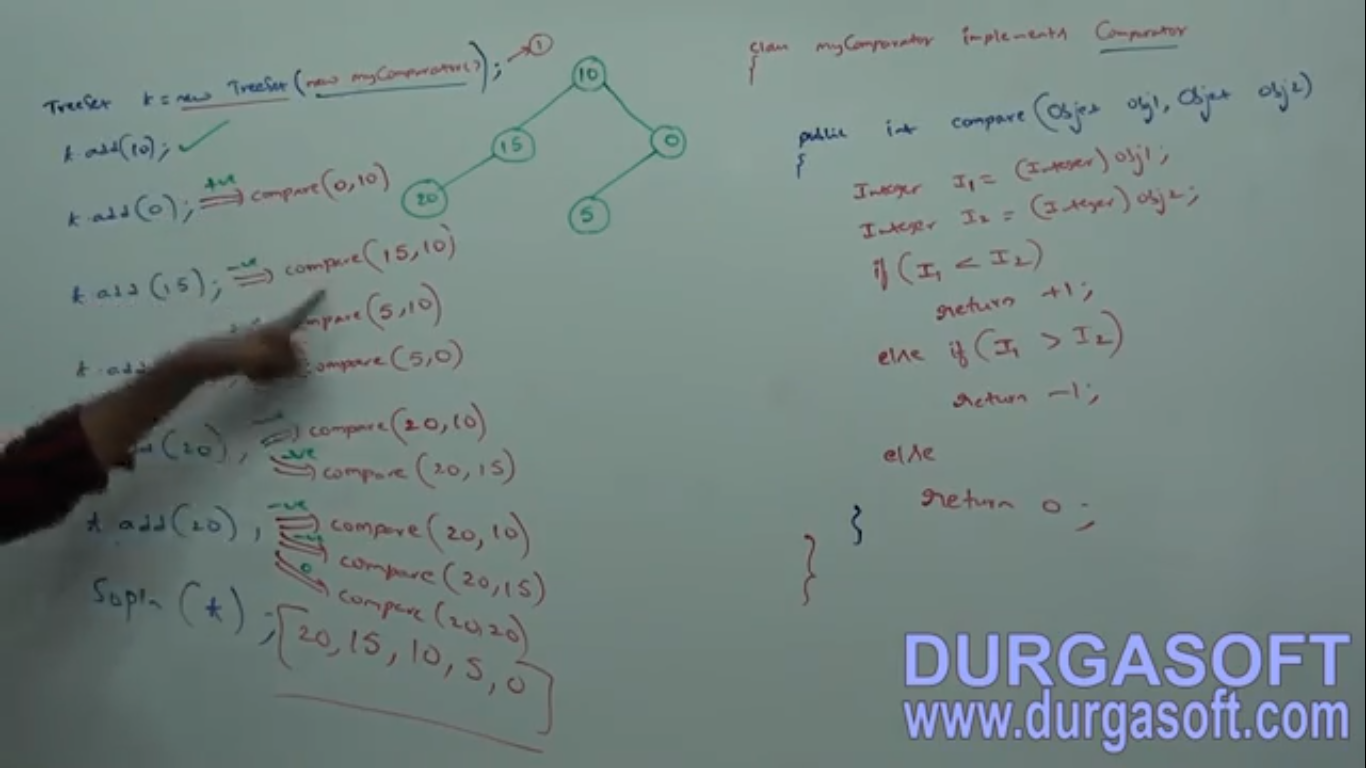 TreeSet t = new TreeSet(new myComparator()); → ①
t.add(10); ✓
t.add(0); +ve ⇒ compare(0,10)
t.add(15); -ve ⇒ compare(15,10)
compare(5,10)
t.add compare(5,0)
(20), -ve ⇒ compare(20,10)
-ve ⇒ compare(20,15)
t.add(20), -ve ⇒ compare(20,10)
-ve ⇒ compare(20,15)
0 ⇒ compare(20,20)
Sopln(t);
[20, 15, 10, 5, 0]
10
15 0
20 5
class myComparator implements Comparator
{
public int compare(Objet obj1, Objet obj2)
{
Integer I1 = (Integer) obj1;
Integer I2 = (Integer) obj2;
if (I1 < I2)
return +1;
else if (I1 > I2)
return -1;
else
return 0;
}
}
DURGASOFT
www.durgasoft.com